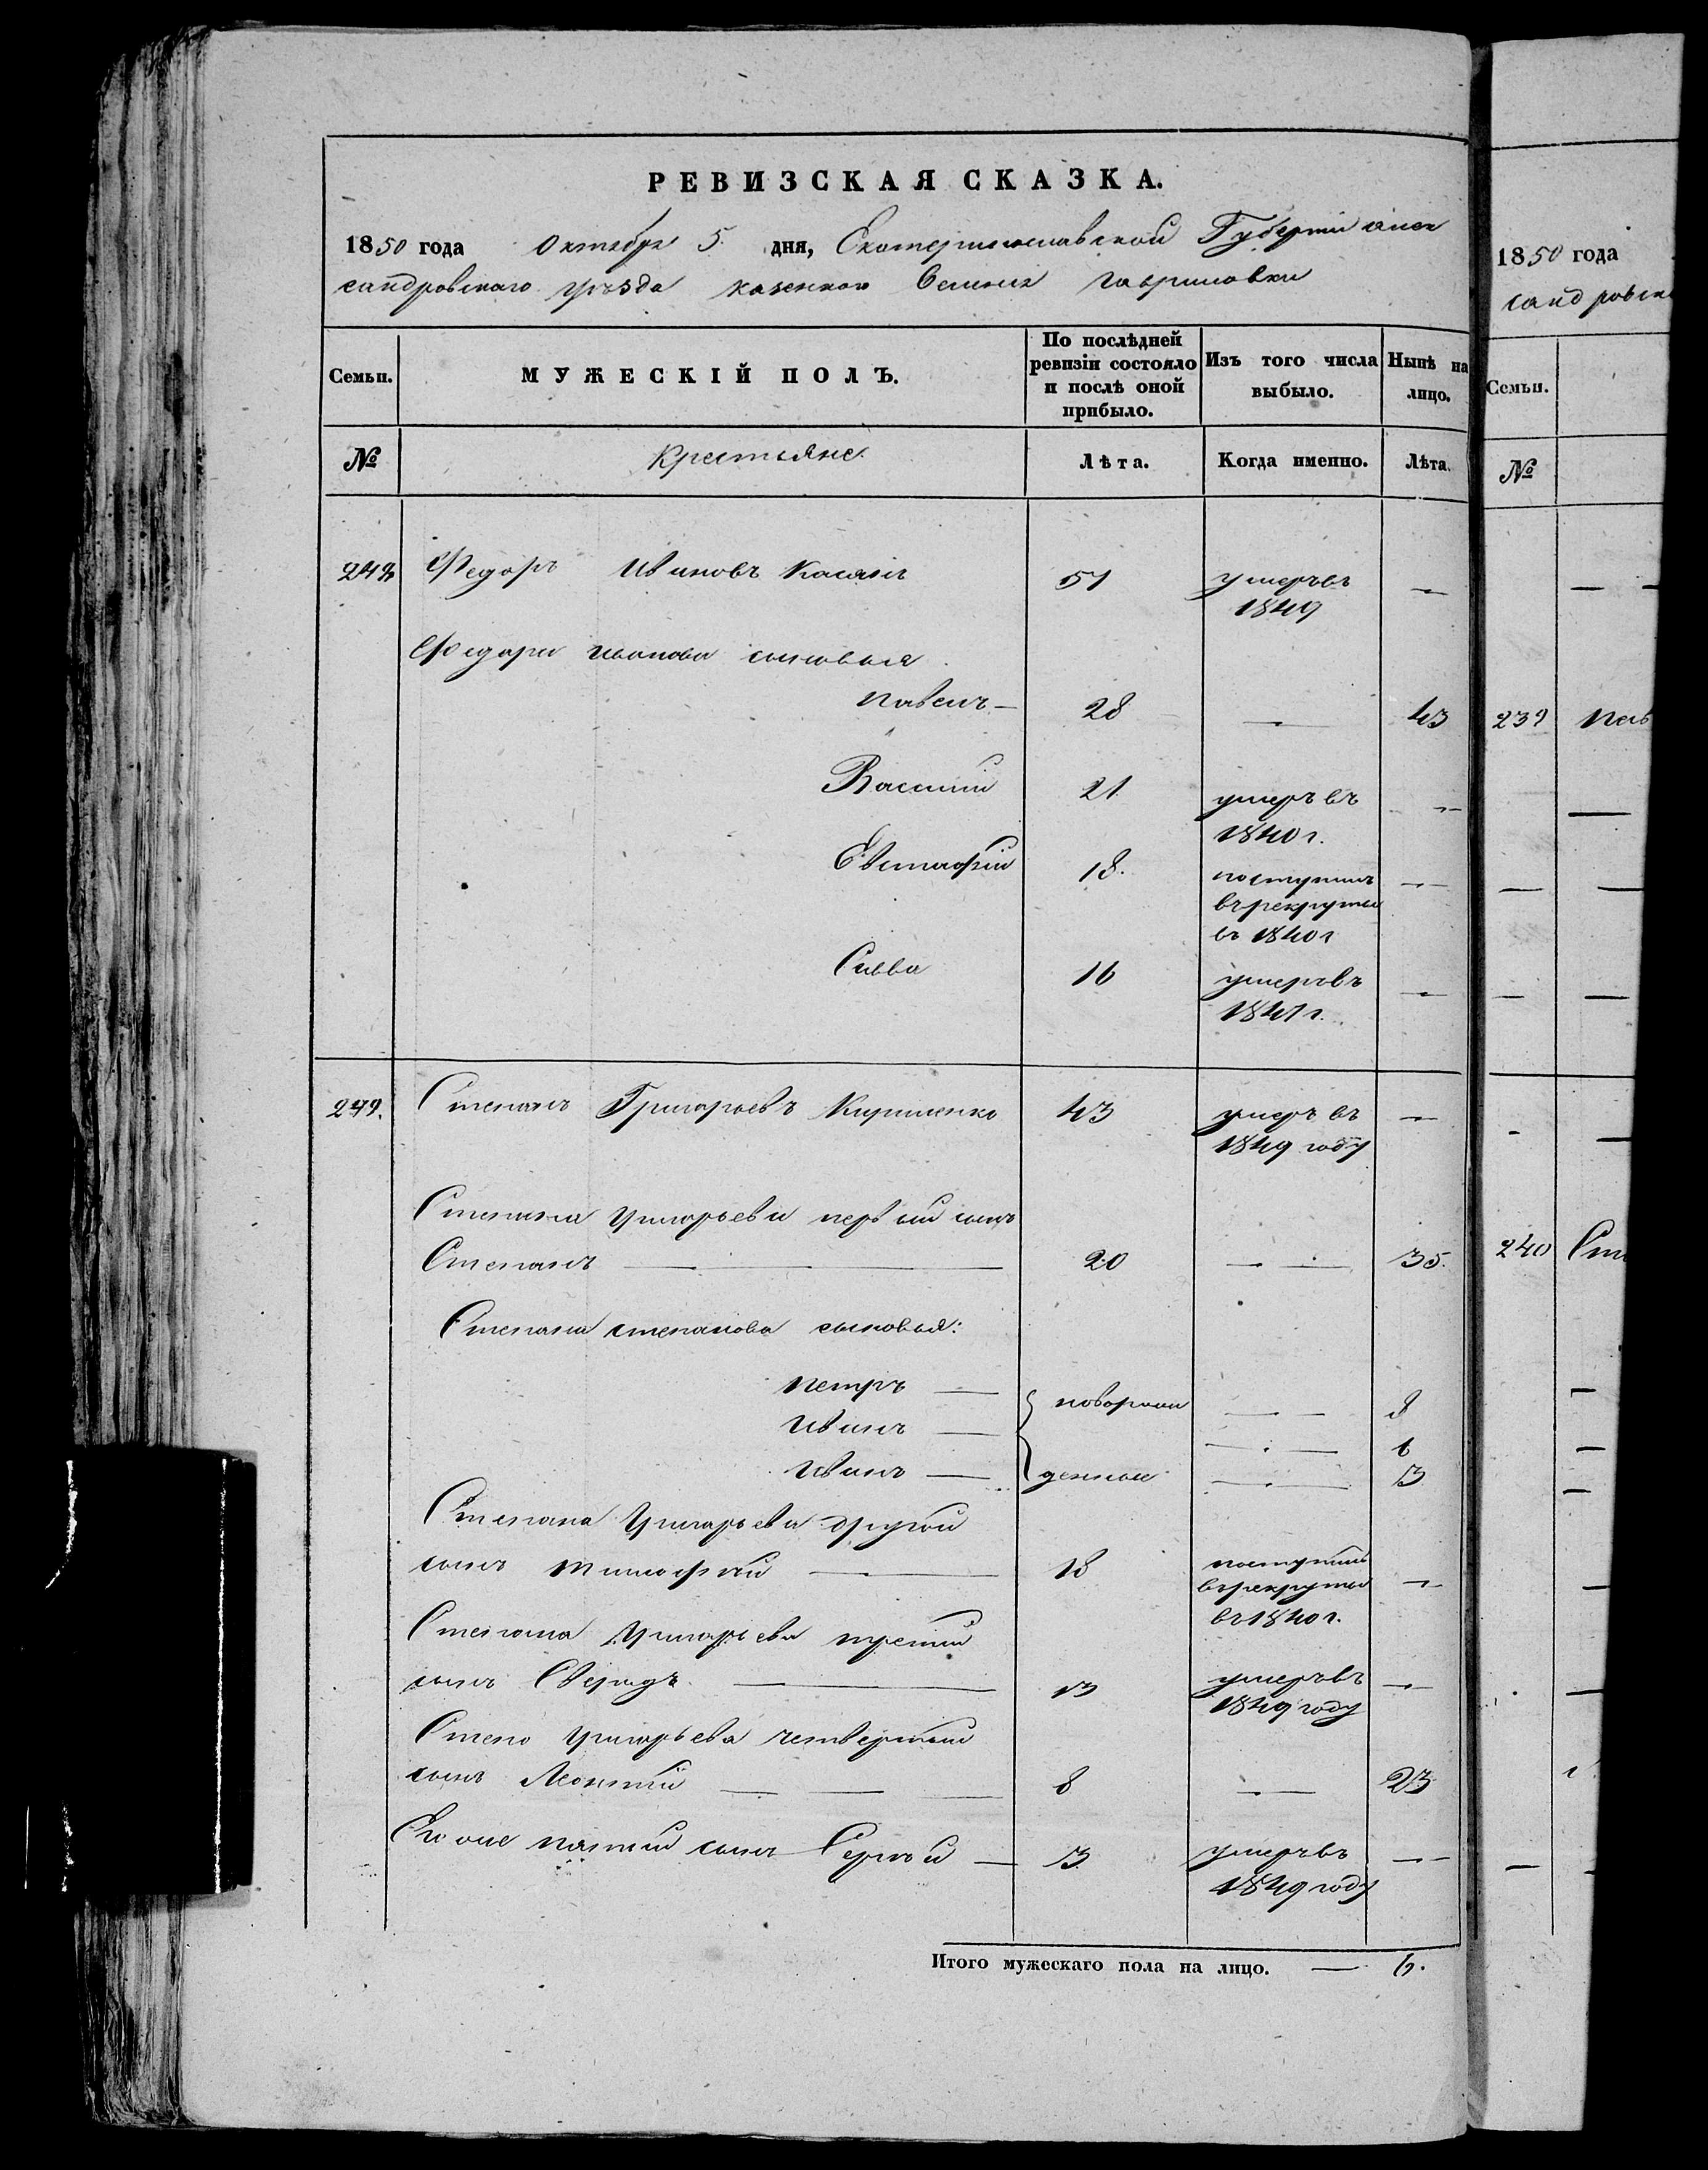 РЕВИЗСКАЯ СКАЗКА.
1850 года Октября 5 дня, Екатеринославской Губернии алек
сандровского уѣзда казенного Селения Гавриловки
Семьи. МУЖЕСКІЙ ПОЛЪ. По послѣдней ревизіи состояло и послѣ оной прибыло. Изъ того числа выбыло. Нынѣ на лицо.
№ Крестьяне Лѣта. Когда именно. Лѣта.
Федоръ Ивановъ 51 умеръ въ —
1849
Федора иванова сыновья
павелъ — 28 — 43
Василий 21 умеръ въ —
1840 г.
Евстафій 18. поступилъ —
въ рекруты
въ 1840 г
Савва 16 умеръ въ —
1841 г.
249. Степанъ Григорьевъ Кириленко 43 умеръ въ —
1849 году
Степана григорьева первый сынъ
Степанъ — 20 — 35.
Степана степанова сыновья:
петръ — новорож — 8
Иванъ — — 6
Иванъ — денные — 3
Степана григорьева другой
сынъ тимофей — 18 поступилъ —
въ рекруты
въ 1840 г.
Степана григорьева третий
сынъ — 13 умеръ въ —
1849 году
Степа григорьева четвертый
сынъ Леонтий — 8 — 23
Его же пятый сынъ Сергѣй — 3 умеръ въ —
1849 году
Итого мужескаго пола на лицо. — 6.
1850 года
санд ровск
Семьи.
№
239 пав
240 Сте